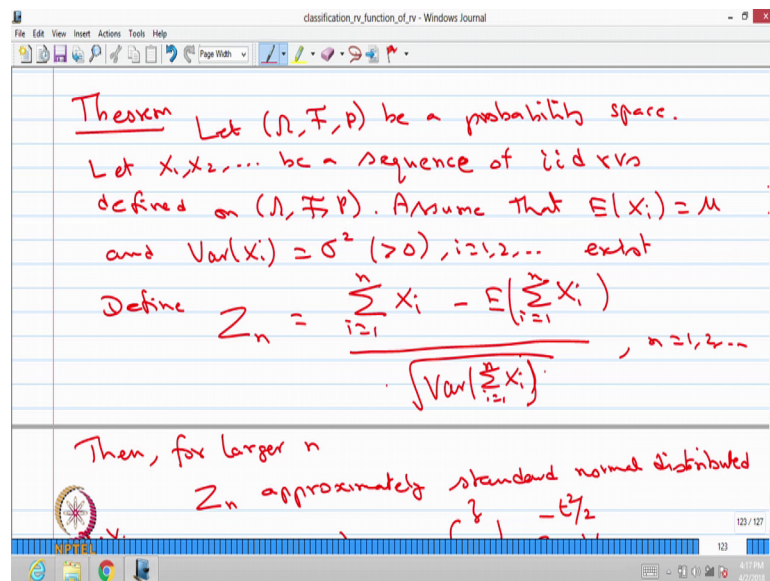 classification_rv_function_of_rv - Windows Journal
File Edit View Insert Actions Tools Help
Page Width
Theorem Let (Ω, F, P) be a probability space.
Let X1, X2, ... be a sequence of iid rvs
defined on (Ω, F, P). Assume that E(Xi) = μ
and Var(Xi) = σ² (>0), i=1,2,... exist
Define Zn = (∑_{i=1}^{n} Xi − E(∑_{i=1}^{n} Xi)) / √Var(∑_{i=1}^{n} Xi), n=1,2,...
Then, for larger n
Zn approximately standard normal distributed
-t²/2
NPTEL
123 / 127
123
4:17 PM